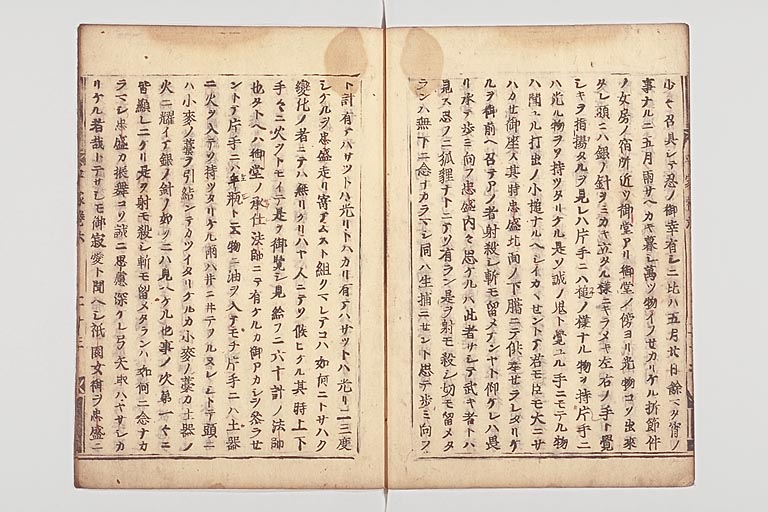 少々召具シテ忍ノ御幸有シニ比ハ五月廿日餘マタ宵ノ
事ナルニ五月雨サヘカキ暮シ萬ツ物イフセカリケル折節件
ノ女房ノ宿所近ツ御堂アリ御堂ノ傍ヨリ光物コソ出來
タレ頭ニハ銀ノ針ヲミカキ立タル様ニキラメキ左右ノ手ト覺
シキヲ指揚タルヲ見レハ片手ニハ槌ノ様ナル物ヲ持片手ニ
ハ光ル物ヲソ持ツタリケル是ソ誠ノ鬼ト覺ユル手ニモテル物
ハ聞ユル打出ノ小槌ナルヘシイカヽセントテ君モ臣モ大ニサ
ハカセ御座ス其時忠盛北面ノ下臈ニテ供奉セラレタリケ
ルヲ御前ヘ召テアノ者射殺シ斬モ留メナンヤト仰ケレハ畏
リ承テ歩ミ向フ忠盛内々思ケルハ此者サシテ武キ者トハ
見ス思フニ狐狸ナトニテソ有ラン是ヲ射モ殺シ切モ留メタ
ランハ無下ニ念ナカラマシ同ハ生捕ニセント思テ歩ミ向フ
ト計有テハサツトハ光リトハカリ有テハサツトハ光リ二三度
シケルヲ忠盛走リ寄テムスト組クマレテコハ如何ニトサハク
變化ノ者ニテハ無リケリハヤ人ニテソ候ヒケル其時上下
手々ニ火クトモイテ是ヲ御覽シ見給フニ六十計ノ法師
也タトヘハ御堂ノ承仕法師ニテ有ケルカ御アカシヲ參ラセ
ントテ片手ニハ手瓶ト云物ニ油ヲ入テモチ片手ニハ土器
ニ火ヲ入テソ持ツタリケル雨ハ井ニ井テフルヌレシトテ頭ニ
ハ小麥ノ藁ヲ引結ンテカツイタリケルカ小麥ノ藁カ土器ノ
火ニ耀イテ銀ノ針ノ如クニハ見ヘケル也事ノ次第一々ニ
皆顯レニケリ是ヲ射モ殺シ斬モ留メタランハ如何ニ念ナカ
ラマシ忠盛カ振舞コソ誠ニ思慮深ケレ弓矢取ハヤサシカ
リケル者哉トテサシモ御寂愛ト聞ヘシ祇園女御ヲ忠盛ニ